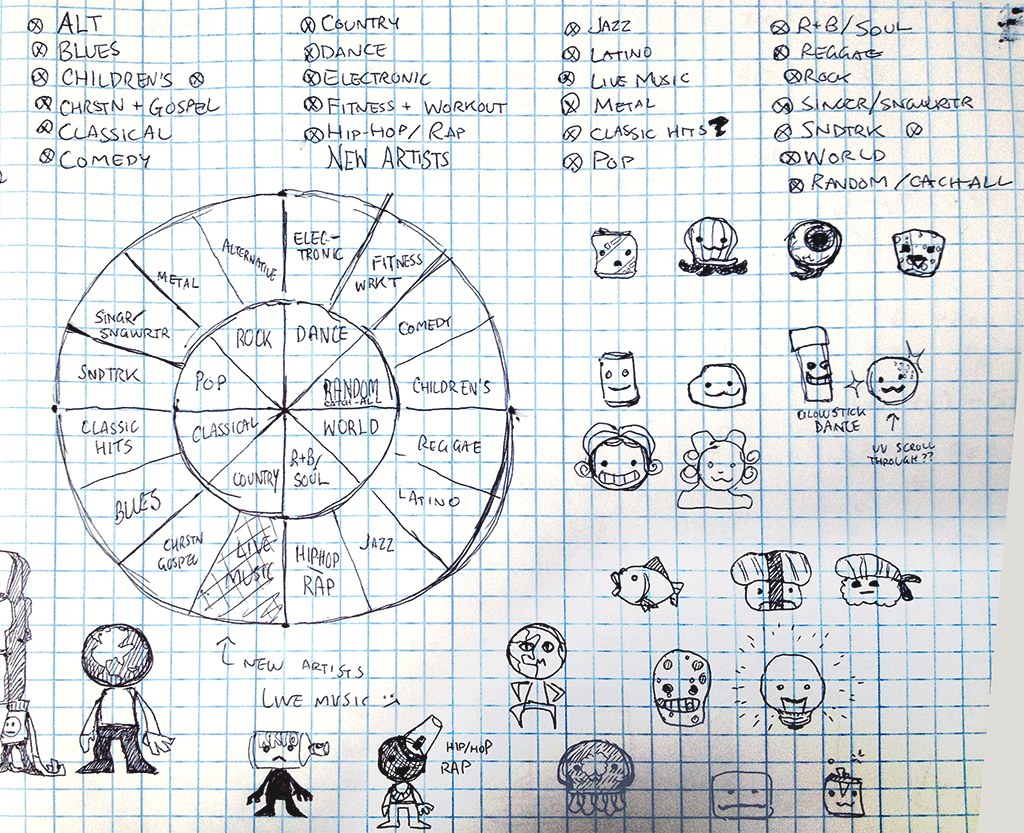 ALT
BLUES
CHILDREN'S
CHRSTN + GOSPEL
CLASSICAL
COMEDY
COUNTRY
DANCE
ELECTRONIC
FITNESS + WORKOUT
HIP-HOP/RAP
NEW ARTISTS
JAZZ
LATINO
LIVE MUSIC
METAL
CLASSIC HITS?
POP
R+B/SOUL
REGGAE
ROCK
SINGER/SNGWRTR
SNDTRK
WORLD
RANDOM/CACH-ALL
ALTERNATIVE
ELEC-
TRONIC
FITNESS
WRKT
COMEDY
CHILDREN'S
REGGAE
LATINO
JAZZ
HIPHOP
RAP
LIVE
MUSIC
CHRSTN
GOSPEL
BLUES
CLASSIC
HITS
SNDTRK
SINGR/
SNGWRTR
METAL
ROCK
DANCE
RANDOM
CATCH-ALL
WORLD
R+B/
SOUL
COUNTRY
CLASSICAL
POP
NEW ARTISTS
LIVE MUSIC
HIP/HOP
RAP
GLOWSTICK
DANCE
UV SCROLL
THROUGH??